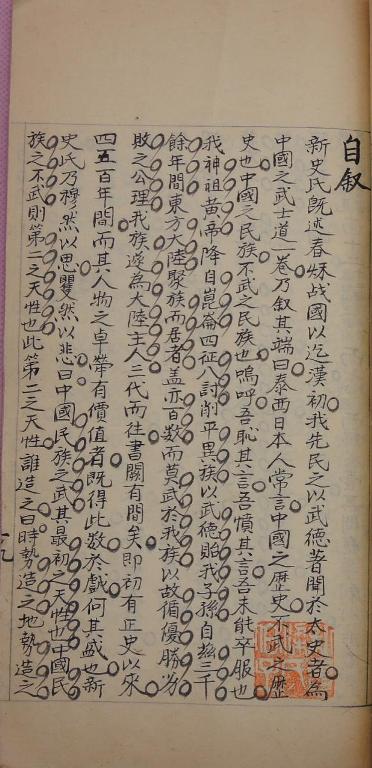 自叙
新史氏既述春秋战國以迄漢初我先民之以武德著聞於太史者為
中國之武士道一卷乃叙其端曰泰西日本人常言中國之歷史不武之歷
史也中國之民族不武之民族也嗚呼吾恥其言吾憤其言吾未能卒服也
我神祖黃帝降自崑崙四征八討削平異族以武德貽我子孫自兹三千
餘年間東方大陸聚族而居者盖亦百數而莫武於我族以故循優勝劣
敗之公理我族遂為大陸主人三代而往書闕有間矣即初有正史以來
四五百年間而其人物之卓犖有價值者既得此数於戲何其盛也新
史氏乃穆然以思矍然以悲曰中國民族之武其最初之天性也中國民
族之不武則第二之天性也此第二之天性誰造之曰時勢造之地勢造之